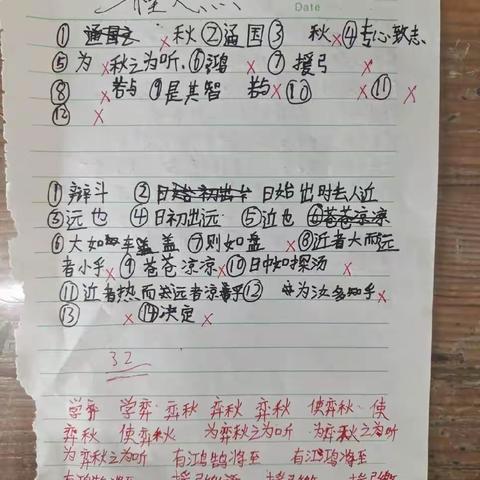 Date
① 秋 ② 通国 ③ 秋 ④ 专心致志
⑤ 为 秋之为听 ⑥ 鸿 ⑦ 援弓
⑧ 若与 ⑨ 是其智 若与 ⑩ ⑪
⑫
① 辩斗 ② 日始出时去人近
③ 远也 ④ 日初出远 ⑤ 近也 ⑥ 苍苍凉凉
⑥ 大如车盖 ⑦ 则如盘 ⑧ 近者大而远
者小乎 ⑨ 苍苍凉凉 ⑩ 日中如探汤
⑪ 近者热而远者凉乎 ⑫ 为汝多知乎
⑬ ⑭ 决定
32
学弈 学弈 弈秋 弈秋 弈秋 使弈秋 使
弈秋 使弈秋 为弈秋之为听 为弈秋之为听
为弈秋之为听 有鸿鹄将至 有鸿鹄将至